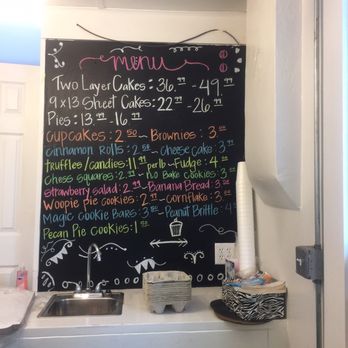 menu
Two Layer Cakes: 36.99 - 49.99
9 x 13 Sheet Cakes: 22.99 - 26.99
Pies: 13.99 - 16.99
cupcakes: 2.50 ~ Brownies: 3.00
cinnamon Rolls: 2.50 ~ Cheese Cake: 3.99
truffles/candies: 11.99 per lb ~ Fudge: 4.00
Chess squares: 2.00 ~ no Bake Cookies: 3.00
strawberry salad: 2.99 ~ Banana Bread: 3.00
Woopie pie cookies: 2.00 ~ Cornflake: 3.00
Magic Cookie Bars: 3.00 ~ Peanut Brittle: 4
Pecan Pie Cookies: 1.50